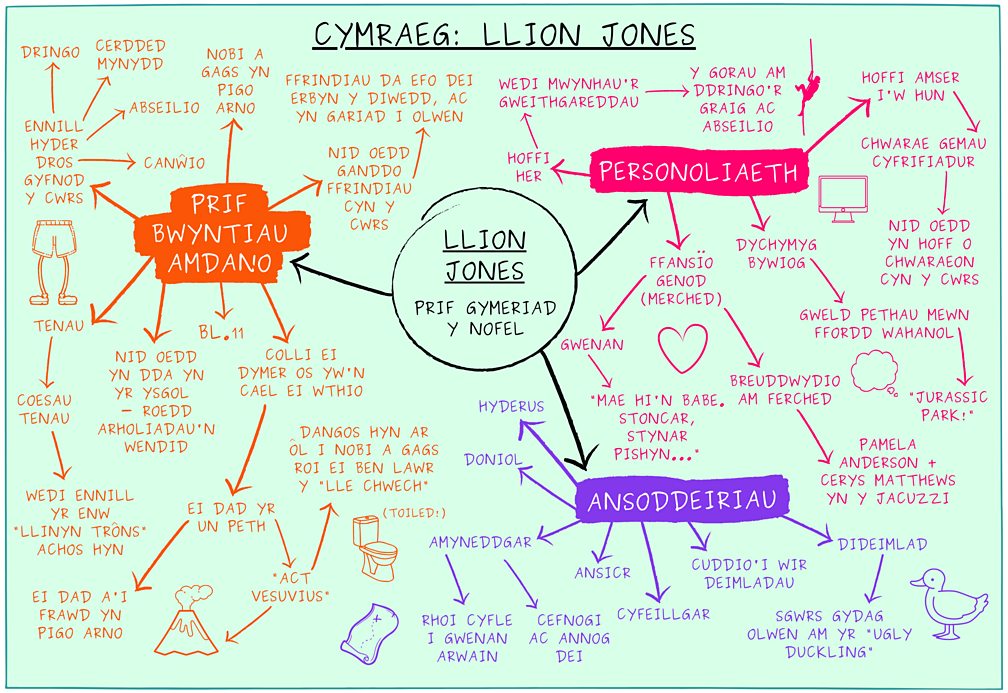 CYMRAEG: LLION JONES
LLION
JONES
PRIF GYMERIAD
Y NOFEL
PRIF
BWYNTIAU
AMDANO
ENNILL
HYDER
DROS
GYFNOD
Y CWRS
DRINGO
CERDDED
MYNYDD
ABSEILIO
CANŴIO
NOBI A
GAGS YN
PIGO
ARNO
NID OEDD
GANDDO
FFRINDIAU
CYN Y
CWRS
FFRINDIAU DA EFO DEI
ERBYN Y DIWEDD, AC
YN GARIAD I OLWEN
TENAU
COESAU
TENAU
WEDI ENNILL
YR ENW
"LLINYN TRÔNS"
ACHOS HYN
NID OEDD
YN DDA YN
YR YSGOL
- ROEDD
ARHOLIADAU'N
WENDID
BL.11
COLLI EI
DYMER OS YW'N
CAEL EI WTHIO
EI DAD YR
UN PETH
EI DAD A'I
FRAWD YN
PIGO ARNO
"ACT
VESUVIUS"
DANGOS HYN AR
ÔL I NOBI A GAGS
ROI EI BEN LAWR
Y "LLE CHWECH"
(TOILED!)
PERSONOLIAETH
HOFFI
HER
WEDI MWYNHAU'R
GWEITHGAREDDAU
Y GORAU AM
DDRINGO'R
GRAIG AC
ABSEILIO
HOFFI AMSER
I'W HUN
CHWARAE GEMAU
CYFRIFIADUR
NID OEDD
YN HOFF O
CHWARAEON
CYN Y CWRS
FFANSÏO
GENOD
(MERCHED)
GWENAN
"MAE HI'N BABE.
STONCAR,
STYNAR
PISHYN..."
BREUDDWYDIO
AM FERCHED
PAMELA
ANDERSON +
CERYS MATTHEWS
YN Y JACUZZI
DYCHYMYG
BYWIOG
GWELD PETHAU MEWN
FFORDD WAHANOL
"JURASSIC
PARK!"
ANSODDEIRIAU
HYDERUS
DONIOL
AMYNEDDGAR
RHOI CYFLE
I GWENAN
ARWAIN
CEFNOGI
AC ANNOG
DEI
ANSICR
CYFEILLGAR
CUDDIO'I WIR
DEIMLADAU
DIDEIMLAD
SGWRS GYDAG
OLWEN AM YR "UGLY
DUCKLING"